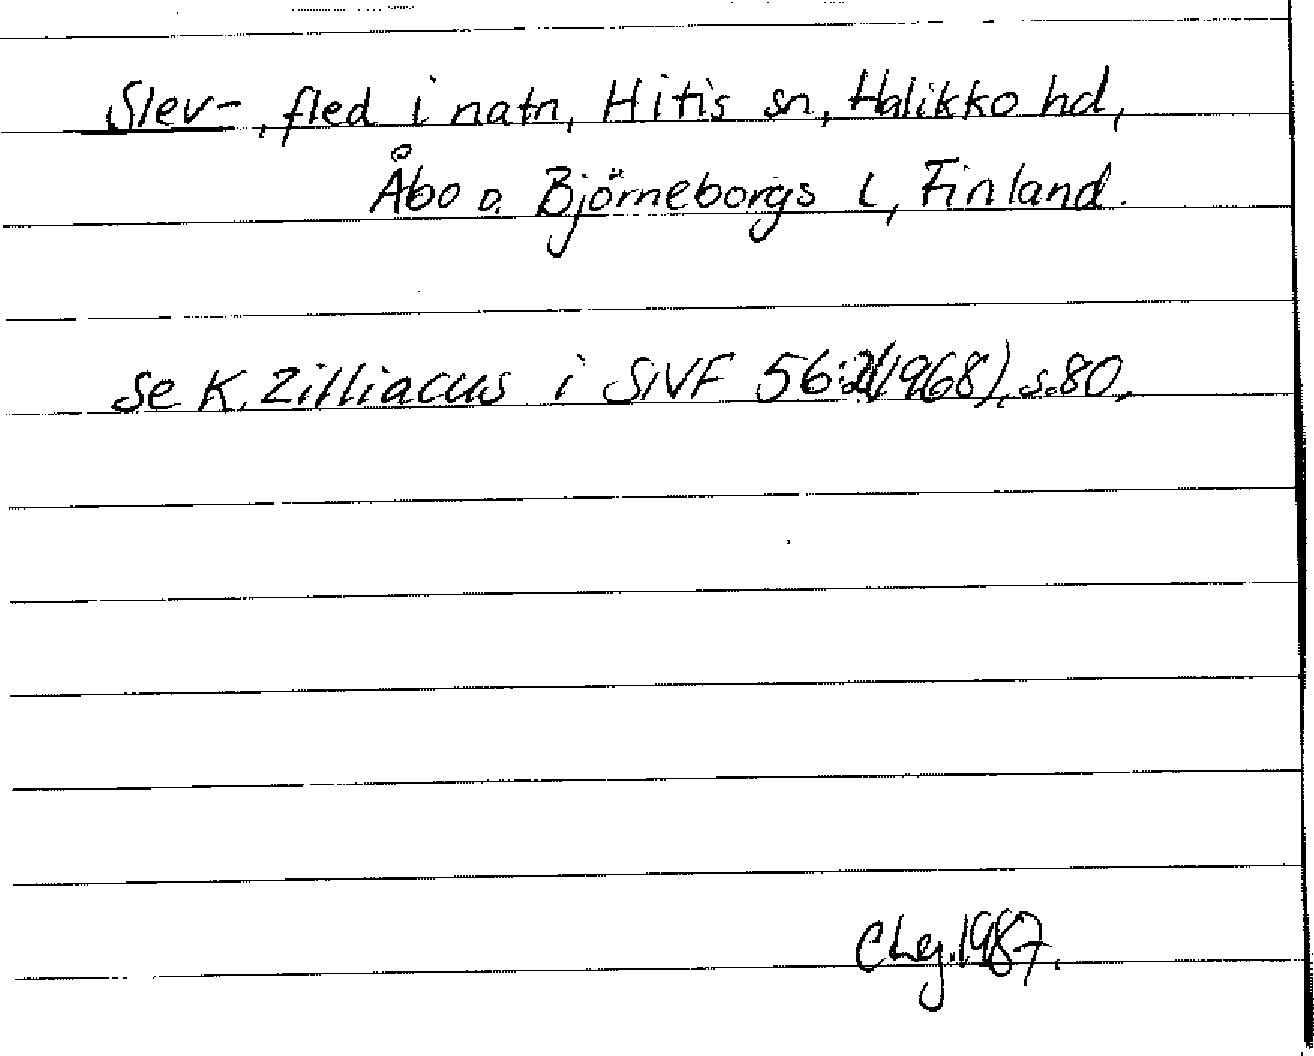 Slev-, fled i natn, Hitis sn, Halikko hd,
Åbo o. Björneborgs l, Finland.
se K. Zilliacus i SNF 56:2(1968), s.80.
CLg.1987.